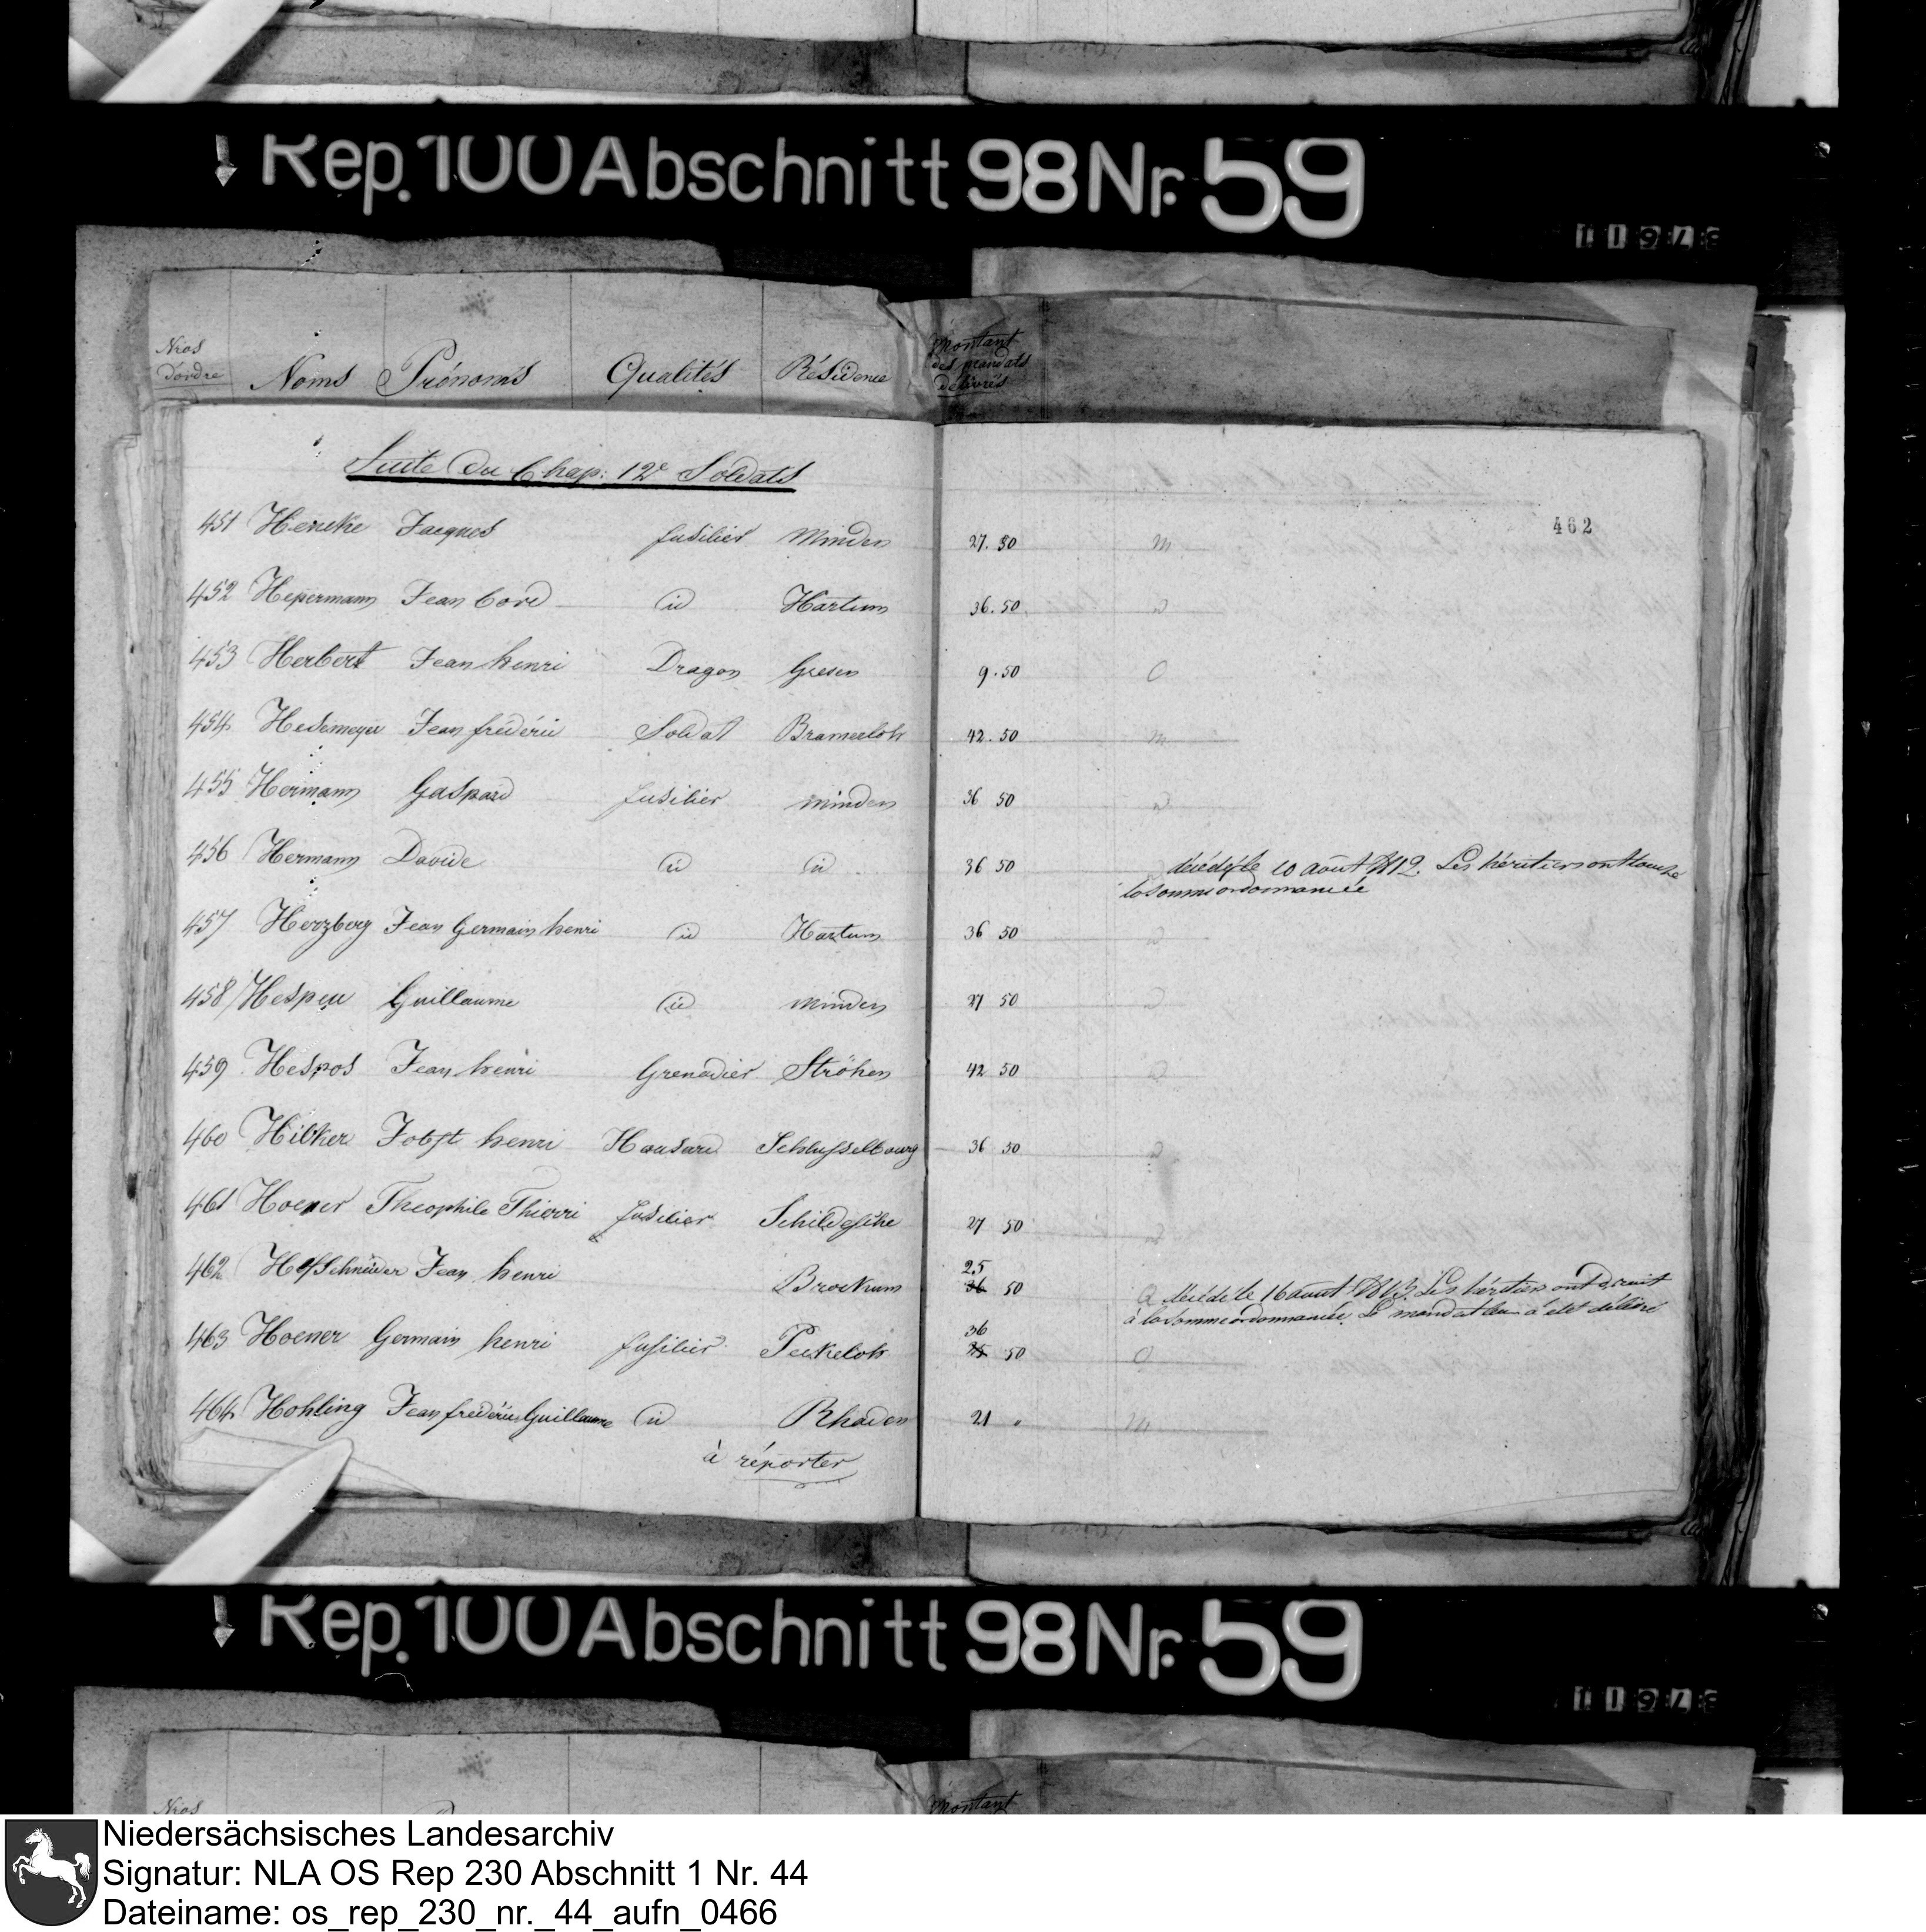 Rep. 100 Abschnitt 98 Nr. 59
Nros d'ordre Noms Prénoms Qualités Résidence Montant des mandats délivrés
Suite du Chap: 12e Soldats
462
451 Hencke Jacques fusilier Minden 27. 50 m
452 Hepermann Jean Cord id Hartum 36. 50
453 Herbert Jean henri Dragon Giesen 9. 50 O
454 Hesemeyer Jean fréderic Soldat Brameeloh 42. 50 m
455 Hermann Gaspard fusilier minden 36 50
456 Hermann Davide id id 36 50 décédé le 10 août 1812. Les héritiers ont touché
la somme ordonnancée
457 Herzberg Jean Germain henri id Hartum 36 50
458 Hespeu Guillaume id minden 27 50
459 Hespos Jean henri Grenadier Ströhen 42 50
460 Hilker Jobst henri Housard Schlusselbourg 36 50
461 Hoener Theophile Thierri fusilier Schildesche 27 50
462 Hofschneider Jean henri Brockum 25 36 50 a décédé le 16 aout 1813. Les héritiers ont droit
à la somme ordonnancée. Le mandat a été délivré
463 Hoener Germain henri fusilier Peckeloh 36 25 50 O
464 Hohling Jean frederic Guillaume id Rhaden 21 " m
à réporter
Rep. 100 Abschnitt 98 Nr. 59
Nros
Montant
Niedersächsisches Landesarchiv
Signatur: NLA OS Rep 230 Abschnitt 1 Nr. 44
Dateiname: os_rep_230_nr._44_aufn_0466